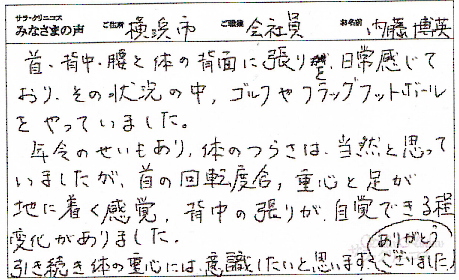 サラ・クリニコス
みなさまの声 ご住所 横浜市 ご職業 会社員 お名前 内藤博英
首・背中・腰と体の背面に張りを、日常感じて
おり、その状況の中、ゴルフやフラッグフットボール
をやっていました。
年令のせいもあり、体のつらさは、当然と思って
いましたが、首の回転度合、重心と足が
地に着く感覚、背中の張りが、自覚できる程
変化がありました。
引き続き体の重心には、意識したいと思います。
ありがとう
ございました。